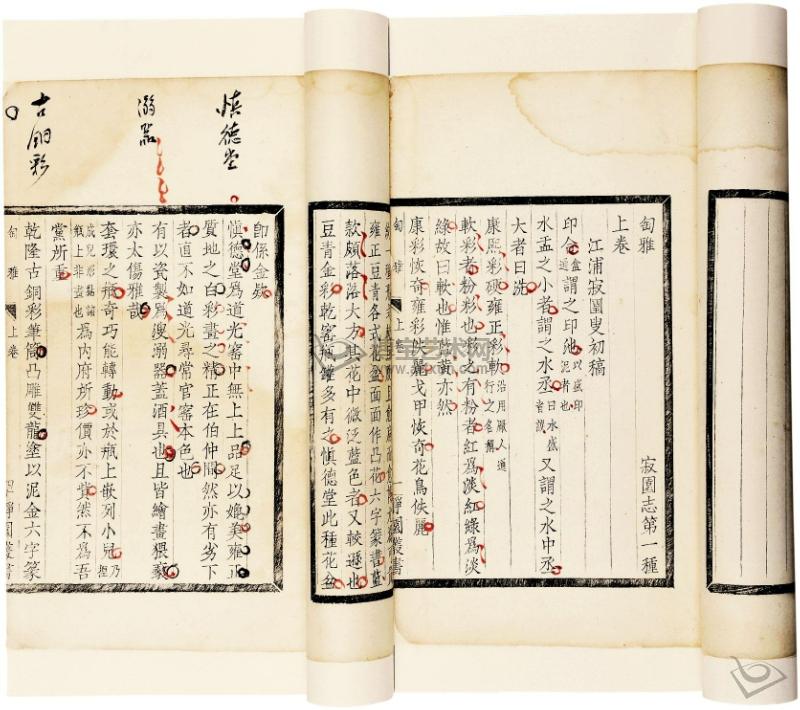 匋雅
寂園志第一種
上卷
江浦寂園叟初稿
印合
謂之印池
水盂之小者謂之水丞
又謂之水中丞
大者曰洗
康熙彩硬雍正彩軟
軟彩者粉彩也彩之有粉者紅爲淡紅綠爲淡
綠故曰軟也惟藍黃亦然
康彩恢奇雍彩佚麗戈甲恢奇花鳥佚麗
匋雅
上卷
靜園叢書
雍正豆青各式花盆面面作凸花六字篆書藍
款頗落落大方其花中微泛藍色者又較遜也
豆青金彩乾窰瓶罐多有之愼德堂此種花盆
愼德堂
溺器
古銅彩
卽係金款
愼德堂爲道光窰中無上上品足以媲美雍正
質地之白彩畫之精正在伯仲間然亦有劣下
者直不如道光尋常官窰本色也
有以瓷製爲溲溺器蓋酒具也且皆繪畫猥褻
亦太傷雅哉
套環之瓶奇巧能轉動或於瓶上嵌列小兒
乃捏
成兒形黏諸
瓶上非畫也
爲内府所珍價亦不貲然不爲吾
黨所重
乾隆古銅彩筆筒凸雕雙龍塗以泥金六字篆
匋雅
上卷
靜園叢書